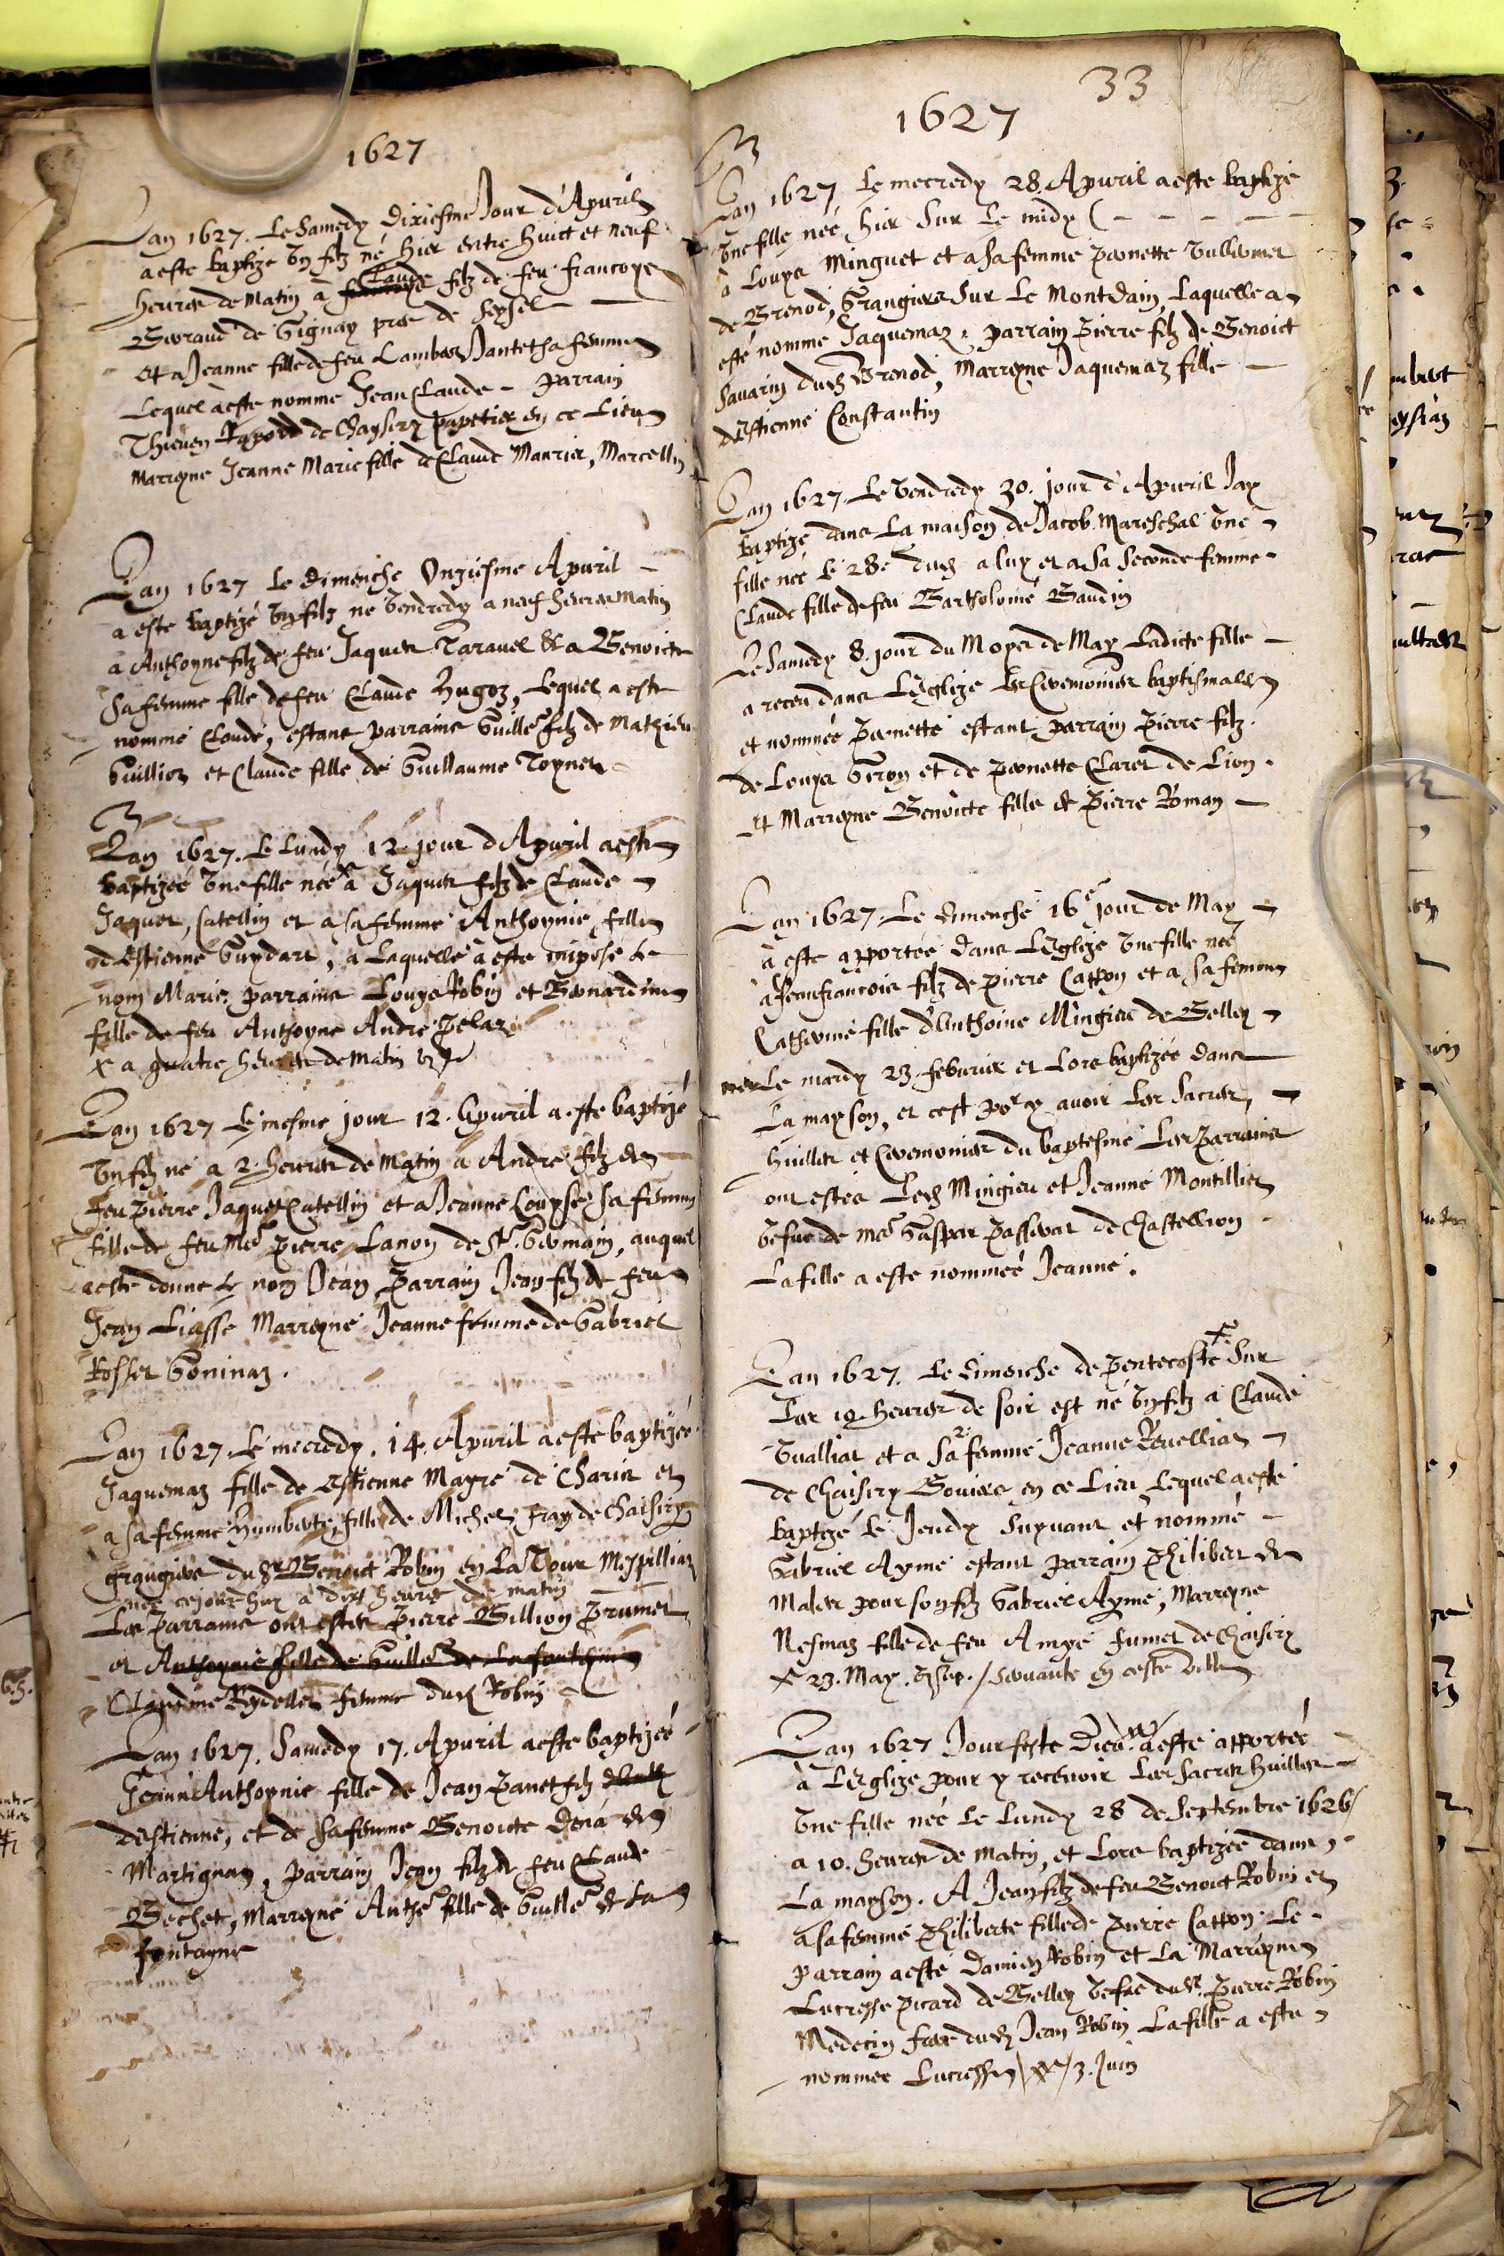 1627
Lan 1627. Le Samedy dixiesme Jour d'Apuril
a este baptizé Vn filz né hier entre huict et neuf
heures de Matin à Claude filz de feu Francoys
Gerraud de Gignay pres de Seysel
et a Jeanne fille de feu Lambert Jantet sa femme
Lequel a este nomme Jean Claude - Parrain
Thieuen Rapord de Chaysery papetier en ce Lieu
Marreyne Jeanne Marie fille de Claude Maurier, Marcellin
Lan 1627 Le dimenche Onziesme Apuril
a este baptizé Vn filz ne Vendredy a neuf heures Matin
a Anthoyne filz de feu Jaques Tarauel & a Benoicte
sa femme fille de feu Claude Hugoz, Lequel a este
nommé Claude, estans parrains Guille filz de Mathieu
Guillioz et Claude fille de Guillaume Toynet
Lan 1627. Le Lundy 12 jour d Apuril a este
baptizéé Vne fille néé x à Jaques filz de Claude
Jaquet, Catellin et a sa femme Anthoynie, fille
d Estienne Guydart, a Laquelle a este impose le
nom Marie. parrains Louys Robin et Bernardine
fille de feu Anthoyne Andre Pelaz
x a quatre heures de Matin
Lan 1627 Le mesme jour 12. Apuril a este baptizé
Vn filz né a 2. heures de Matin a Andre filz de
feu Pierre Jaquet Catellin et a Jeanne Loupse sa femme
fille de feu Me Pierre Lanoy de St. Germain, auquel
a este donne le nom Jean Parrain Jean filz de feu
Jean Liasse Marreyne Jeanne femme de Gabriel
Rosset Goninaz.
Lan 1627. Le mecredy. 14. Apuril a este baptizéé
Jaquemaz fille de Estienne Mayre de Charix et
a sa femme Humberte, fille de Michel Fray de Chaisery
grangiers du Sr Benoict Robin en La Tour Mespilliaz
néé ce jourdhuy a dix heures de matin
Les Parrains ont estes Pierre Billion Prumet
et Anthoynie fille de Guille de La fontayne
Claudine Reydellet femme dud Robin
Lan 1627. Samedy 17. Apuril a este baptizéé
Jeann' Anthoynie fille de Jean Panet filz
destienne, et de sa femme Benoicte Dena de
Martignaz, parrain Jean filz de feu Claude
Bechet, Marreyne Anthe fille de Guille de La
fontayne
33
1627
Lan 1627 Le mecredy 28. Apuril a este baptizé
Vne fille néé hier sur le midy (- - - - -
à Louys Minguet et a sa femme Pernette Vulliermet
de Brenod, Grangiers sur Le Mont dain, Laquelle a
esté nommé Jaquemaz. parrain Pierre filz de Benoict
Sauarin dud Brenod, Marreyne Jaquemaz fille
d'Estienne Constantin
Lan 1627. Le Vendredy 30. jour d'Apuril Jay
baptizé dans La maison de Jacob Mareschal Vne
fille néé le 28e dud a luy et a sa seconde femme
Claude fille de feu Bartholomé Gaudin
Le Samedy 8. jour du Moys de May Ladicte fille
a receu dans L'Eglize Les Ceremonies baptismalles
et nomméé Pernette estant parrain Pierre filz
de Louys Giron et de Pernette Claret de Lion.
et Marreyne Benoicte fille de Pierre Roman
Lan 1627. Le dimenche 16e jour de May
à este apportéé dans L'Eglize Vne fille néé
à Jeanfrancois filz de Pierre Cappon et a sa femme
Catherine fille d'Anthoine Mingieu de Belley
Le mardy 23. feburier et Lors baptizéé dans
La mayson, et cest por y auoir Les sacrés
huilles et Ceremonies du baptesme Les Parrains
ont estes Led Mingieu et Jeanne Montillies
Vefue de me Gaspar Passerat de Chastellion
La fille a este nomméé Jeanne.
Lan 1627. Le dimenche de Pentecoste x sur
Les 10 heures de soir est né Vn filz a Claude
Vualliat et a sa 2e femme Jeanne Reuelliat
de Chaisery Bouiers en ce Lieu Lequel a esté
baptizé le Jeudy suyuant et nommé
Gabriel Aymé estant parrain Philibert de
Malet pour son filz Gabriel Aymé, Marreyne
Nesmaz fille de feu Aimé Fumet de Chaisery
x 23. May. / Seruante en ceste ville
Lan 1627 Jour feste Dieu a este apportéé
à L'Eglize pour y receuoir Les sacrés huilles
Vne fille néé Le Lundy 28 de Septembre 1626
a 10. heures de matin, et Lors baptizéé dans
La mayson. A Jean filz de feu Benoict Robin et
a sa femme Philiberte fille de Pierre Cappon. Le
parrain a esté Damien Robin et La Marreyne
Lucresse Picard de Belley Vefue du Sr. Pierre Robin
Medecin frere dud Jean Robin La fille a este
nommee Lucresse / 3. Juin